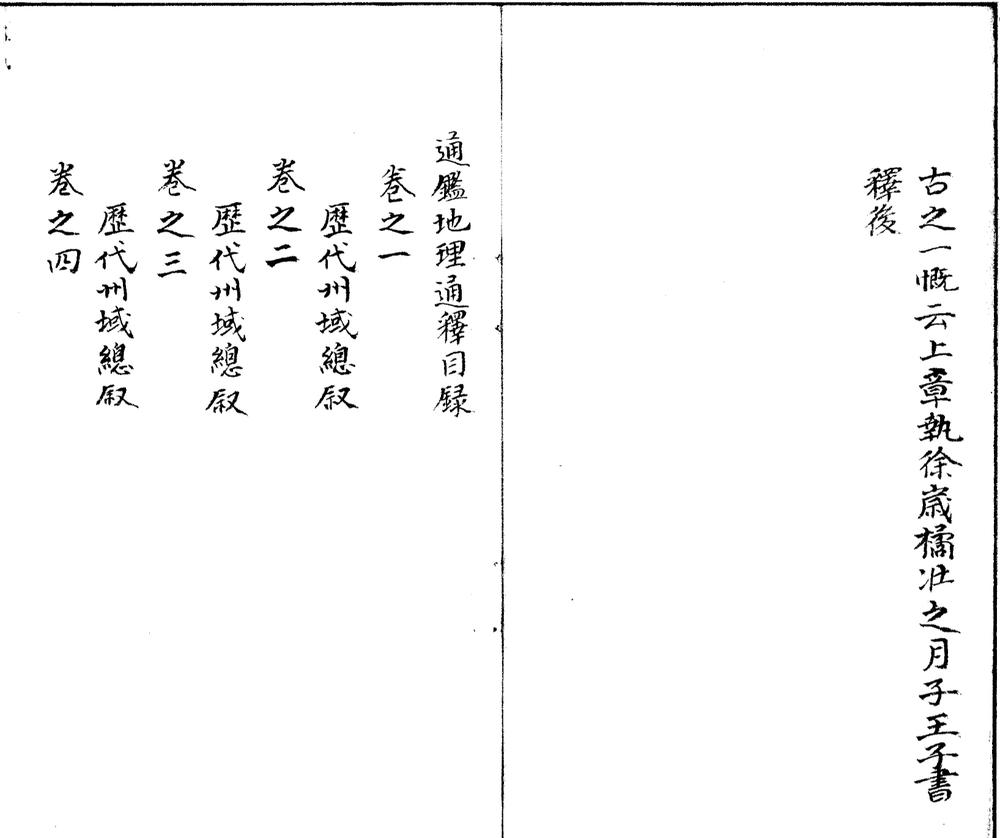 古之一慨云上章執徐歲橘壯之月子王子書
釋後
通鑑地理通釋目録
卷之一
歷代州域總叙
卷之二
歷代州域總叙
卷之三
歷代州域總叙
卷之四